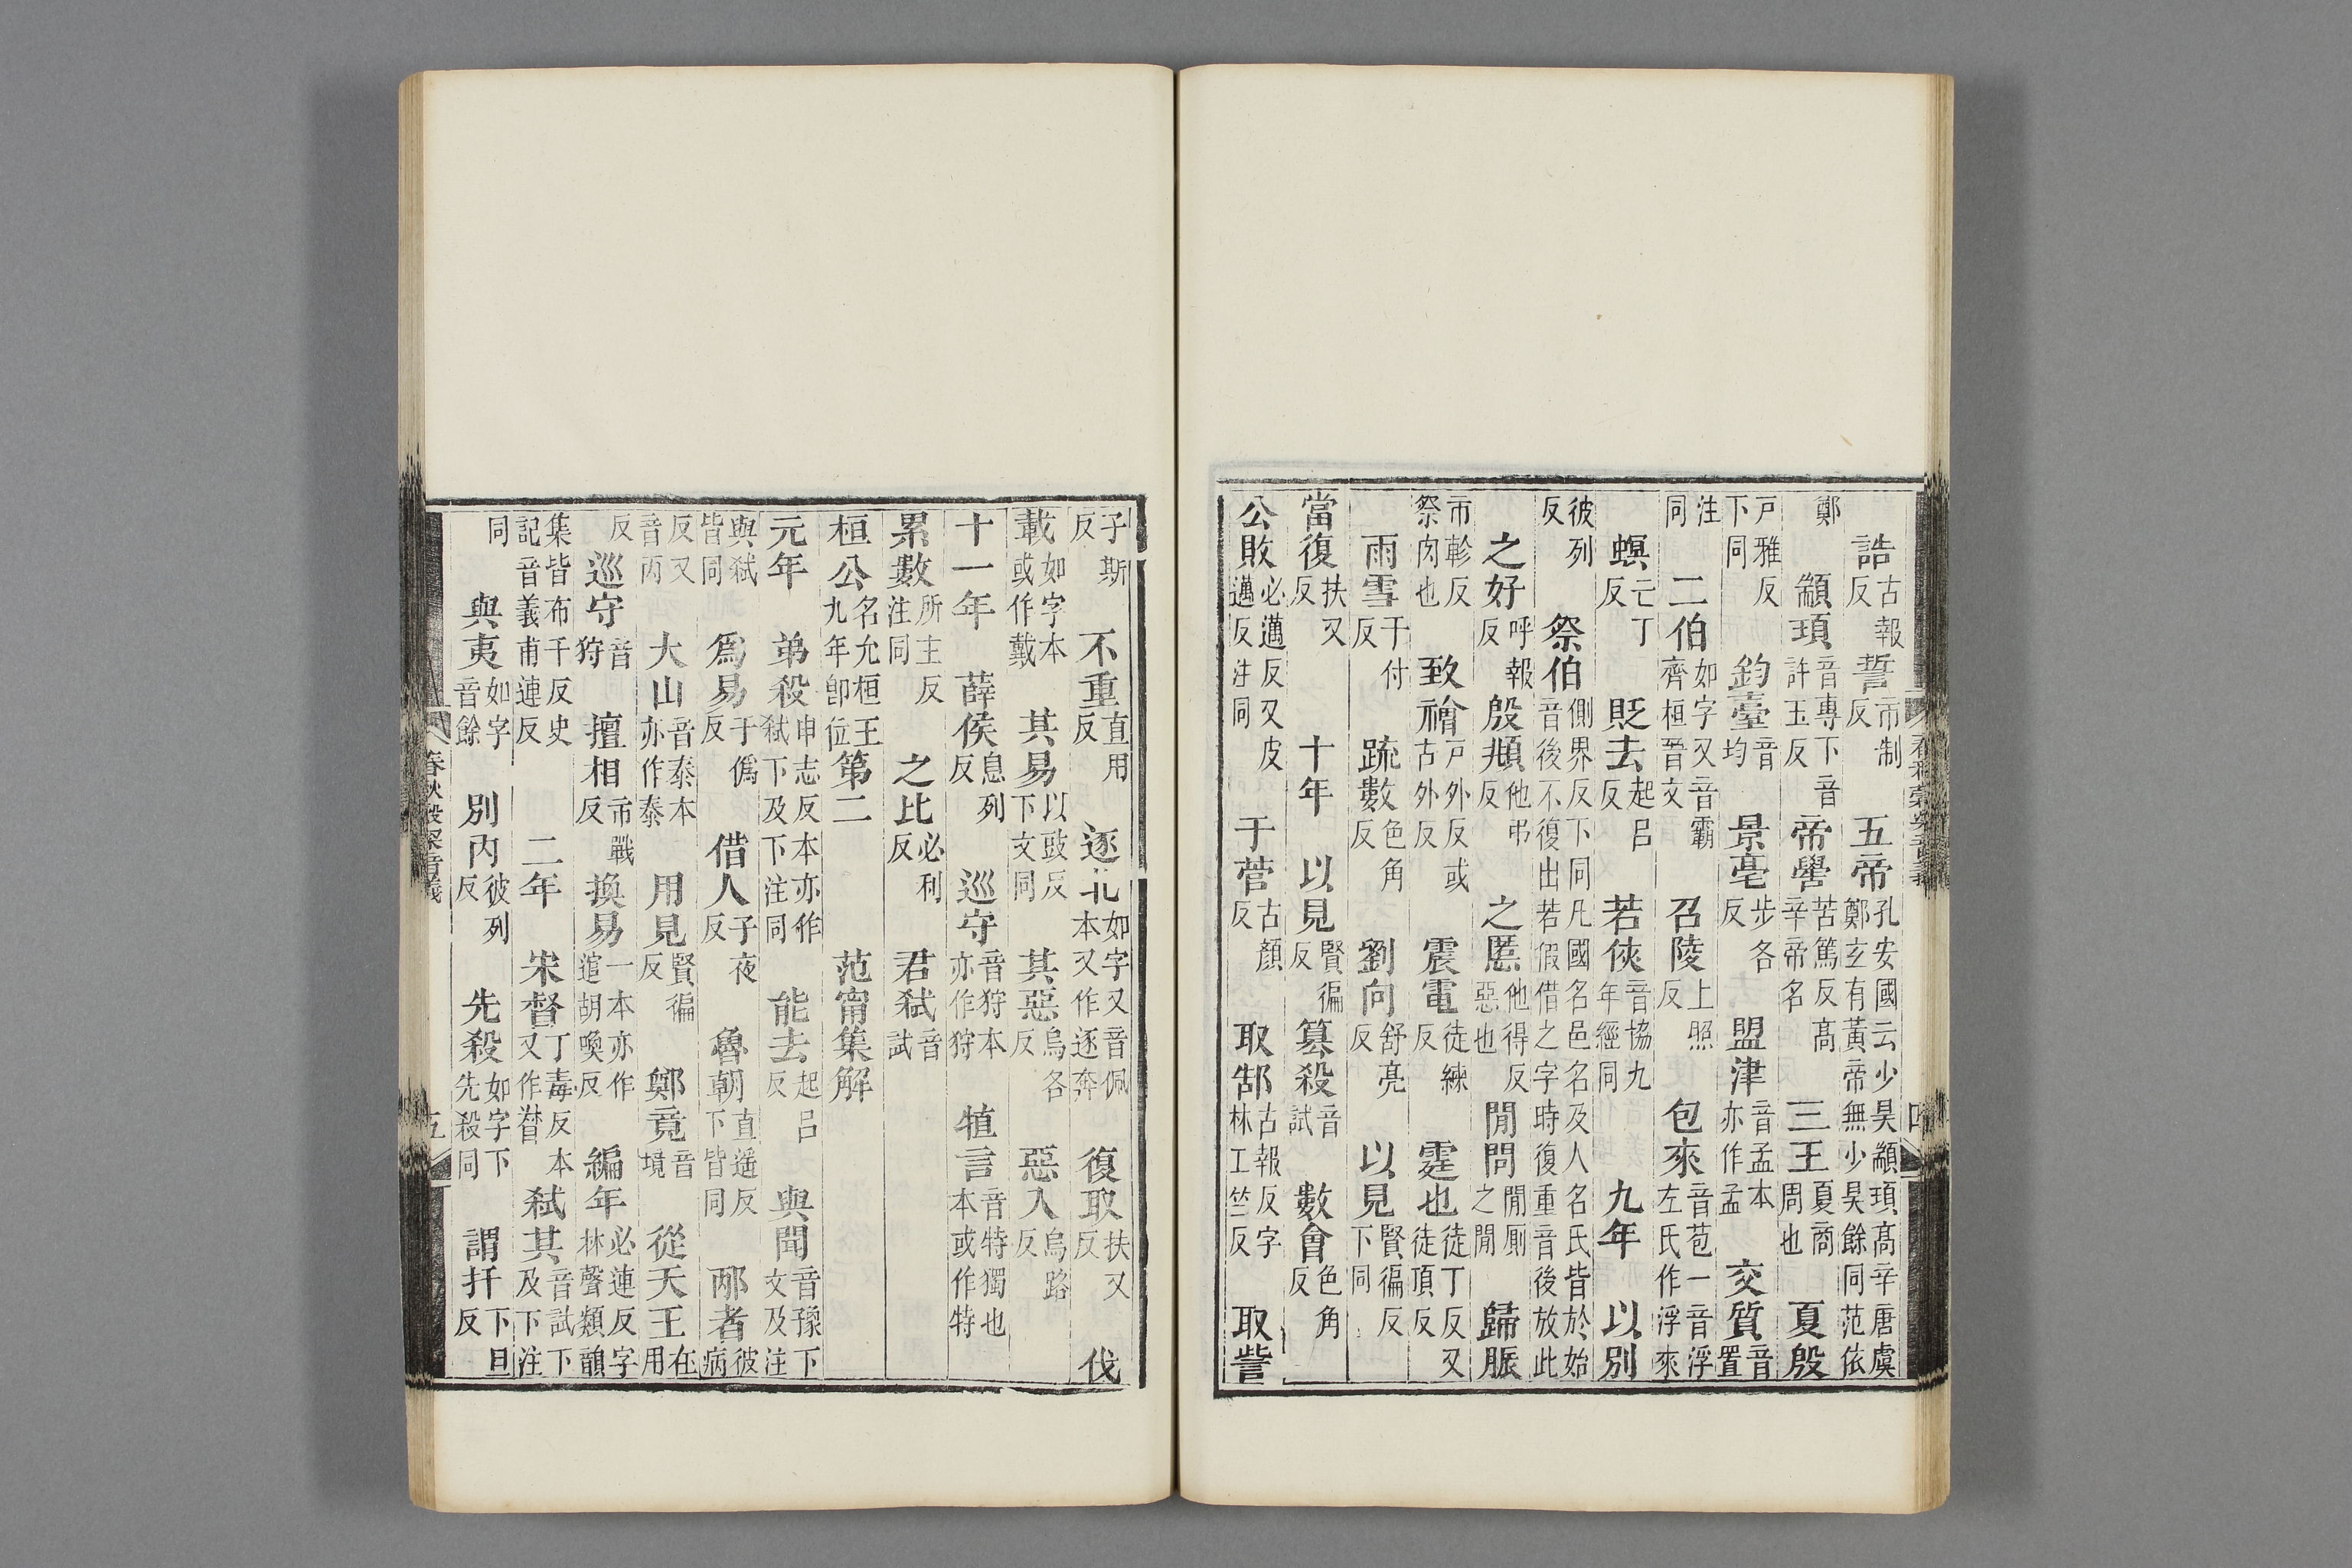 誥古報反誓市制反五帝孔安國云少昊顓頊高辛唐虞鄭玄有黃帝無少昊餘同范依
鄭顓頊音專下音許玉反帝嚳苦篤反高辛帝名三王夏商周也夏殷
戶雅反下同鈞臺音均景亳步各反盟津音孟本亦作孟交質音置
注同二伯如字又音霸齊桓晉文召陵上照反包來音苞一音浮左氏作浮來
螟亡丁反貶去起呂反若俠音協九年經同九年以別
彼列反祭伯側界反下同凡國名邑名及人名氏皆於始音後不復出若假借之字時復重音後放此
之好呼報反殷頫他弔反之慝他得反惡也間問閒廁之閒歸脤
市軫反祭肉也致禬戶外反或古外反震電徒練反霆也徒丁反又徒頂反
雨雪于付反疏數色角反劉向舒亮反以見賢徧反下同
當復扶又反十年以見賢徧反篡殺音試數會色角反
公敗必邁反又皮邁反注同于菅古顏反取郜古報反字林工竺反取訾
子斯反不重直用反逐北如字又音佩本又作逐奔復取扶又反伐
載如字本或作戴其易以豉反下文同其惡烏各反惡入烏路反
十一年薛侯息列反巡守音狩本亦作狩犆言音特獨也本或作特
累數所主反注同之比必利反君弒音試
桓公名允桓王九年卽位第二范甯集解
元年弟殺申志反本亦作弒下及下注同能去起呂反與聞音豫下文及注
與弒皆同爲易于僞反借人子夜反魯朝直遥反下皆同邴者彼病
反又音丙大山音泰本亦作泰用見賢徧反鄭竟音境從天王在用
反巡守音狩擅相市戰反換易一本亦作逭胡喚反編年必連反字林聲類韻
集皆布千反史記音義甫連反二年宋督丁毒反本又作䜼弒其音試下及下注
同與夷如字音餘別內彼列反先殺如字下先殺同謂扞下旦反
春秋穀梁音義
五